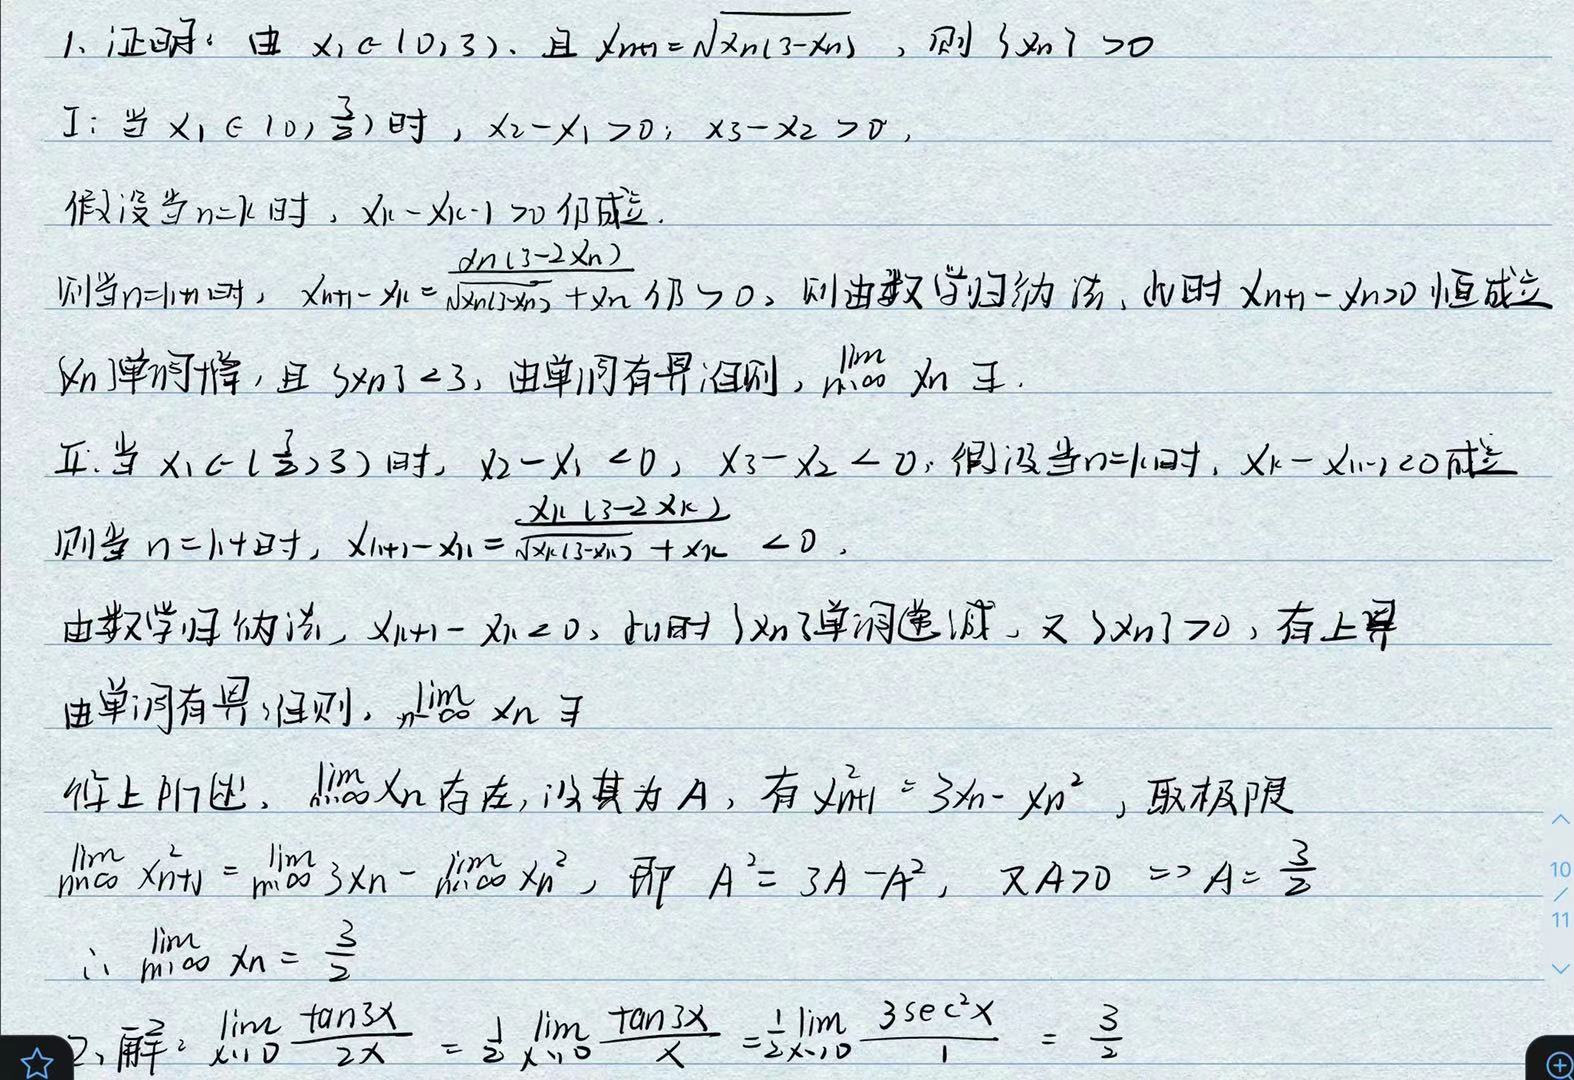 1、证明：由 x₁∈(0,3)、且 xₙ₊₁=√xₙ(3-xₙ)，则{xₙ}>0
I：当 x₁∈(0,3/2)时，x₂-x₁>0；x₃-x₂>0，
假设当n=k时，xₖ-xₖ₋₁>0仍成立.
则当n=k+1时，xₙ₊₁-xₖ=xₙ(3-2xₙ)/(√xₙ(3-xₙ)+xₙ)仍>0、则由数学归纳法，此时xₙ₊₁-xₙ>0恒成立
{xₙ}单调增，且{xₙ}<3，由单调有界准则，lim n→∞ xₙ ∃.
II.当 x₁∈(3/2,3)时，x₂-x₁<0，x₃-x₂<0，假设当n=k时，xₖ-xₖ₋₁<0成立
则当 n=k+1时，xₖ₊₁-xₖ=xₖ(3-2xₖ)/(√xₖ(3-xₖ)+xₖ)<0.
由数学归纳法，xₖ₊₁-xₖ<0，此时{xₙ}单调递减、又{xₙ}>0，有上界
由单调有界准则，lim n→∞ xₙ ∃
综上所述、lim n→∞ xₙ存在，设其为A，有x²ₙ₊₁=3xₙ-xₙ²，取极限
lim n→∞ x²ₙ₊₁=lim n→∞ 3xₙ-lim n→∞ xₙ²，即 A²=3A-A²，又A>0 => A=3/2
∴ lim n→∞ xₙ=3/2
2、解：lim x→0 tan3x/2x=1/2 lim x→0 tan3x/x=1/2 lim x→0 3sec²x/1=3/2
10
/
11